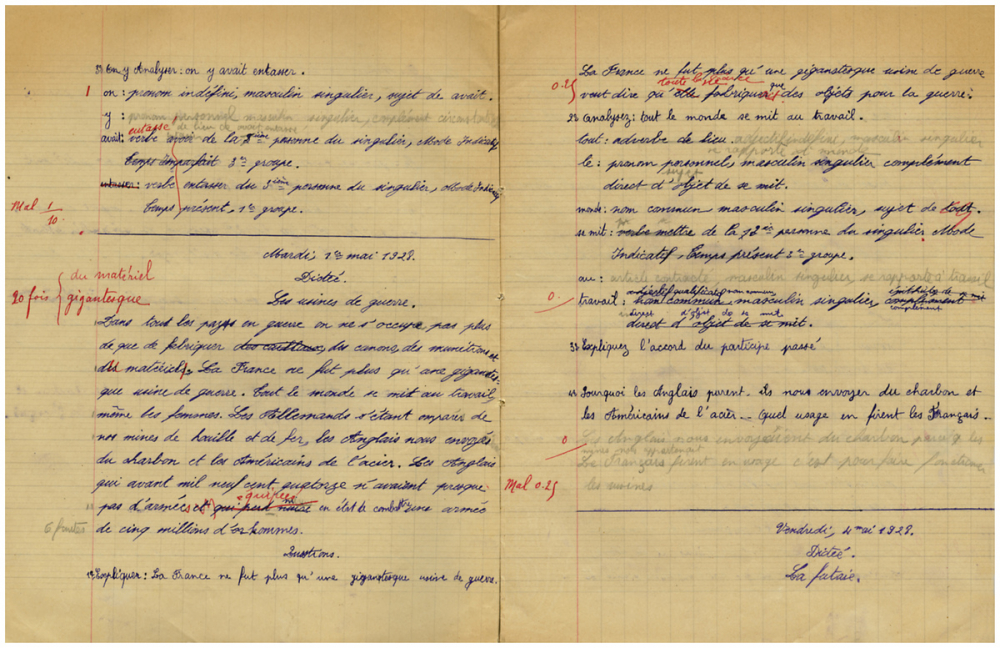 3º En y Analyser : on y avait entasser.
1 on : pronom indéfini, masculin singulier, sujet de avait.
y : pronom personnel masculin singulier, complément
entasse de lieu de
avait : verbe avoir de la 3ième personne du singulier, Mode Indicatif
temps imparfait 3e groupe.
entasser : verbe entasser du 3ième personne du singulier, Mode Indicatif
Temps présent, 1er groupe.
Mal 1/10
Mardi, 1er mai 1928.
Dictée.
du matériel
20 fois gigantesque
Les usines de guerre.
Dans tous les pays en guerre on ne s'occupe pas plus
de que de fabriquer des canons, des munitions et
du matériel. La France ne fut plus qu'une gigantes-
que usine de guerre. Tout le monde se mit au travail
même les femmes. Les Allemands s'étant emparés de
nos mines de houille et de fer, les Anglais nous envoyés
du charbon et les Américains de l'acier. Les Anglais
qui avant mil neuf cent quatorze n'avaient presque
pas d'armées et en état de combattre une armée
5 fautes de cinq millions d'hommes.
Questions.
1º Expliquer : La France ne fut plus qu'une gigantesque usine de guerre.
La France ne fut plus qu'une gigantesque usine de guerre
toute la France que
0.25 veut dire qu'elle fabriquait des objets pour la guerre.
2º Analysez : tout le monde se mit au travail.
tout : adverbe de lieu. adjectif indéfini, masculin singulier
se rapporte à monde
le : pronom personnel, masculin singulier complément
sujet
direct d'objet de se mit.
monde : nom commun masculin singulier, sujet de tout.
se mit : verbe mettre de la 3e personne du singulier Mode
Indicatif, temps présent 3e groupe.
au : article contracté masculin singulier se rapporte à travail
adjectif qualificatif nom commun
0. travail : nom commun masculin singulier, complément
complément
direct d'objet de se mit
direct d'objet de se mit.
3º Expliquez l'accord du participe passé
4º Pourquoi les Anglais purent-ils nous envoyer du charbon et
les Américains de l'acier — Quel usage en firent les Français.
0 Les Anglais nous envoyèrent du charbon parce que les
mines leur appartenent
Les Français firent en usage c'est pour faire fonctionner
les usines
Mal 0.25
Vendredi, 4 mai 1928.
Dictée.
La futaie.